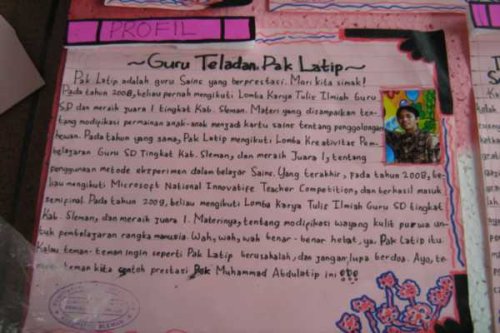 PROFIL
~Guru Teladan, Pak Latip~
Pak Latip adalah guru Sains yang berprestasi. Mari kita simak!
Pada tahun 2008, beliau pernah mengikuti Lomba Karya Tulis Ilmiah Guru
SD dan meraih juara 1 tingkat Kab. Sleman. Materi yang disampaikan ten-
tang modipikasi permainan anak-anak menjadi kartu sains tentang penggolongan
hewan. Pada tahun yang sama, Pak Latip mengikuti Lomba Kreativitas Pem-
belajaran Guru SD Tingkat Kab. Sleman, dan meraih Juara 1, tentang
penggunaan metode eksperimen dalam belajar Sains. Yang terakhir, pada tahun 2008, be-
liau mengikuti Microsoft National Innovatife Teacher Competition, dan berhasil masuk
semipinal. Pada tahun 2009, beliau mengikuti Lomba Karya Tulis Ilmiah Guru SD tingkat
Kab. Sleman, dan meraih juara 1. Materinya, tentang modipikasi wayang kulit purwa un-
tuk pembelajaran rangka manusia. Wah, wah, wah benar-benar hebat, ya, Pak Latip itu.
Kalau teman-teman ingin seperti Pak Latip berusahalah, dan jangan lupa berdoa. Ayo, te-
man-teman kita contoh prestasi Pak Muhammad Abdulatip ini !!!